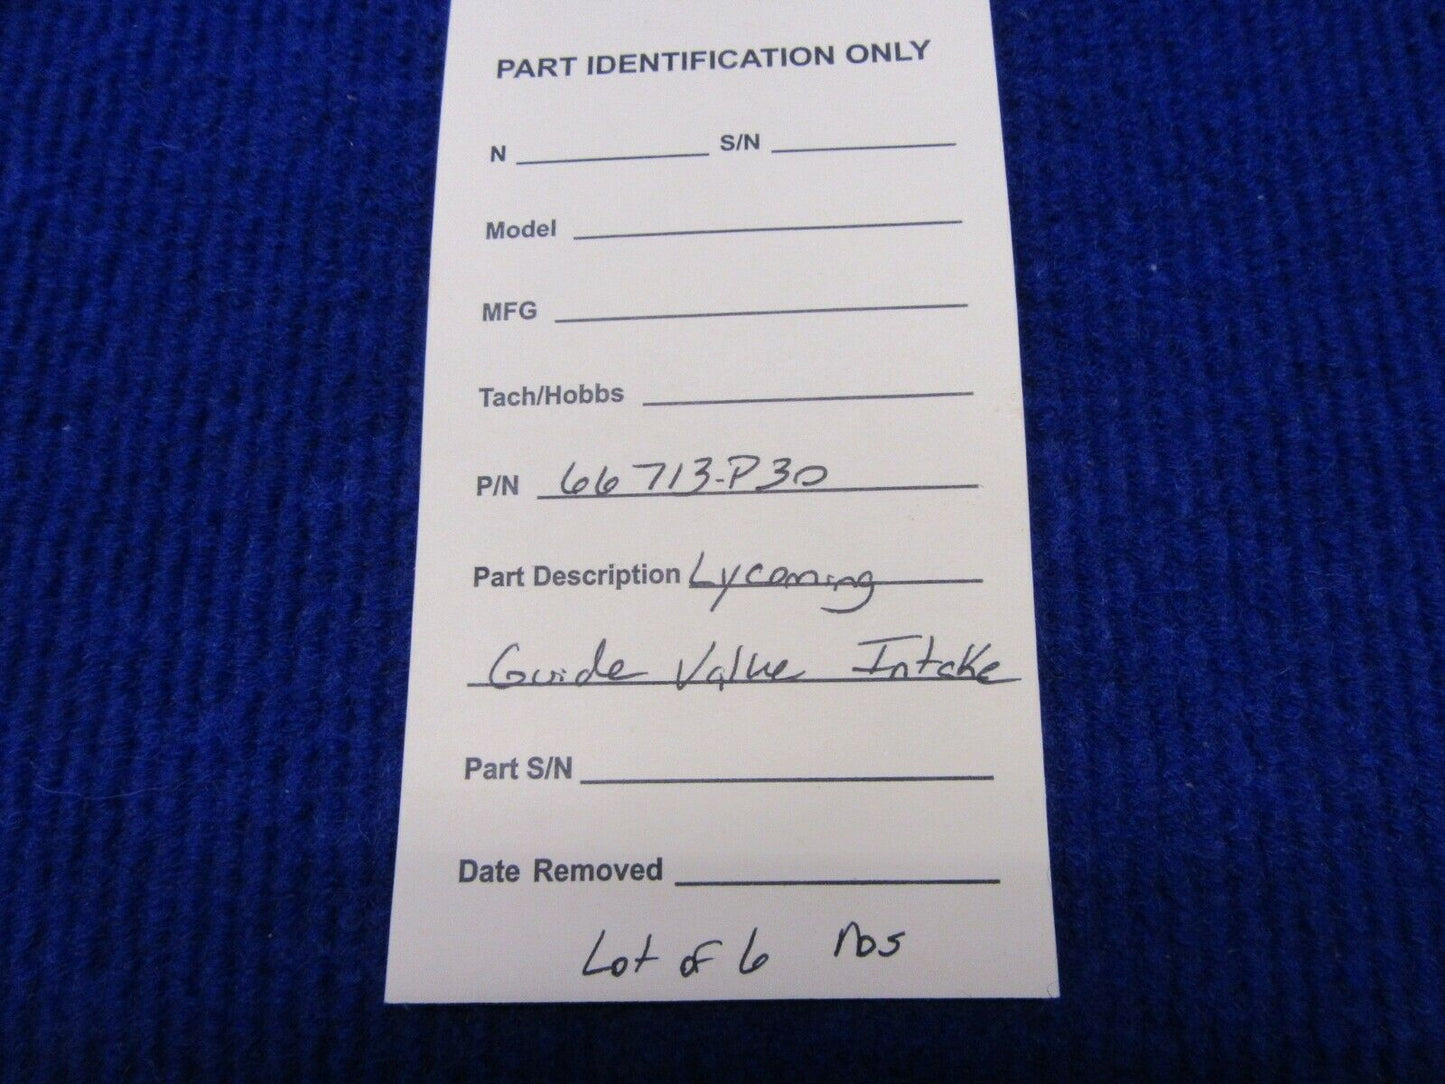 PART IDENTIFICATION ONLY
N S/N
Model
MFG
Tach/Hobbs
P/N 66713-P30
Part Description Lycoming
Guide Valve Intake
Part S/N
Date Removed
Lot of 6 nos